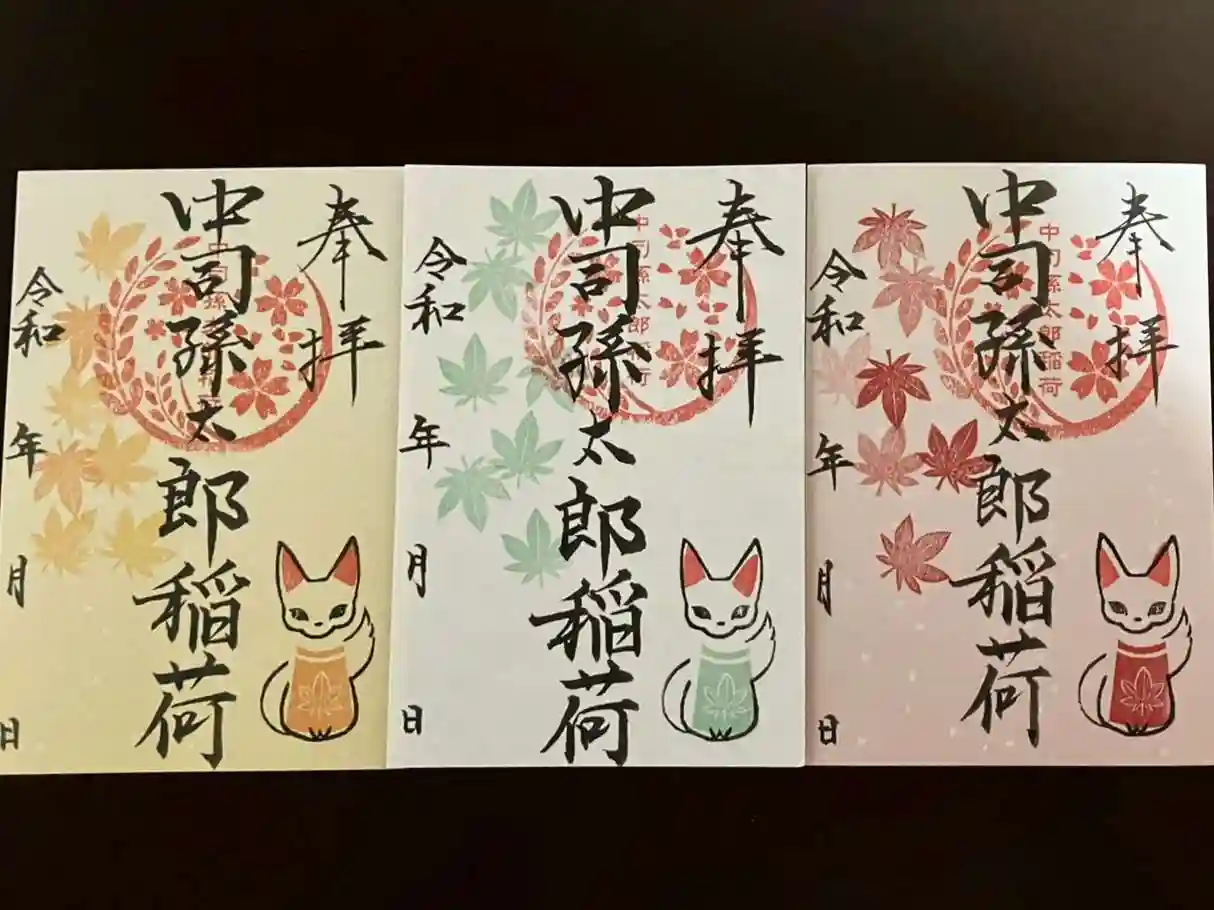 奉拝
中司孫太郎稲荷
中司孫太郎稲荷
令和 年 月 日
奉拝
中司孫太郎稲荷
中司孫太郎稲荷
令和 年 月 日
奉拝
中司孫太郎稲荷
中司孫太郎稲荷
令和 年 月 日